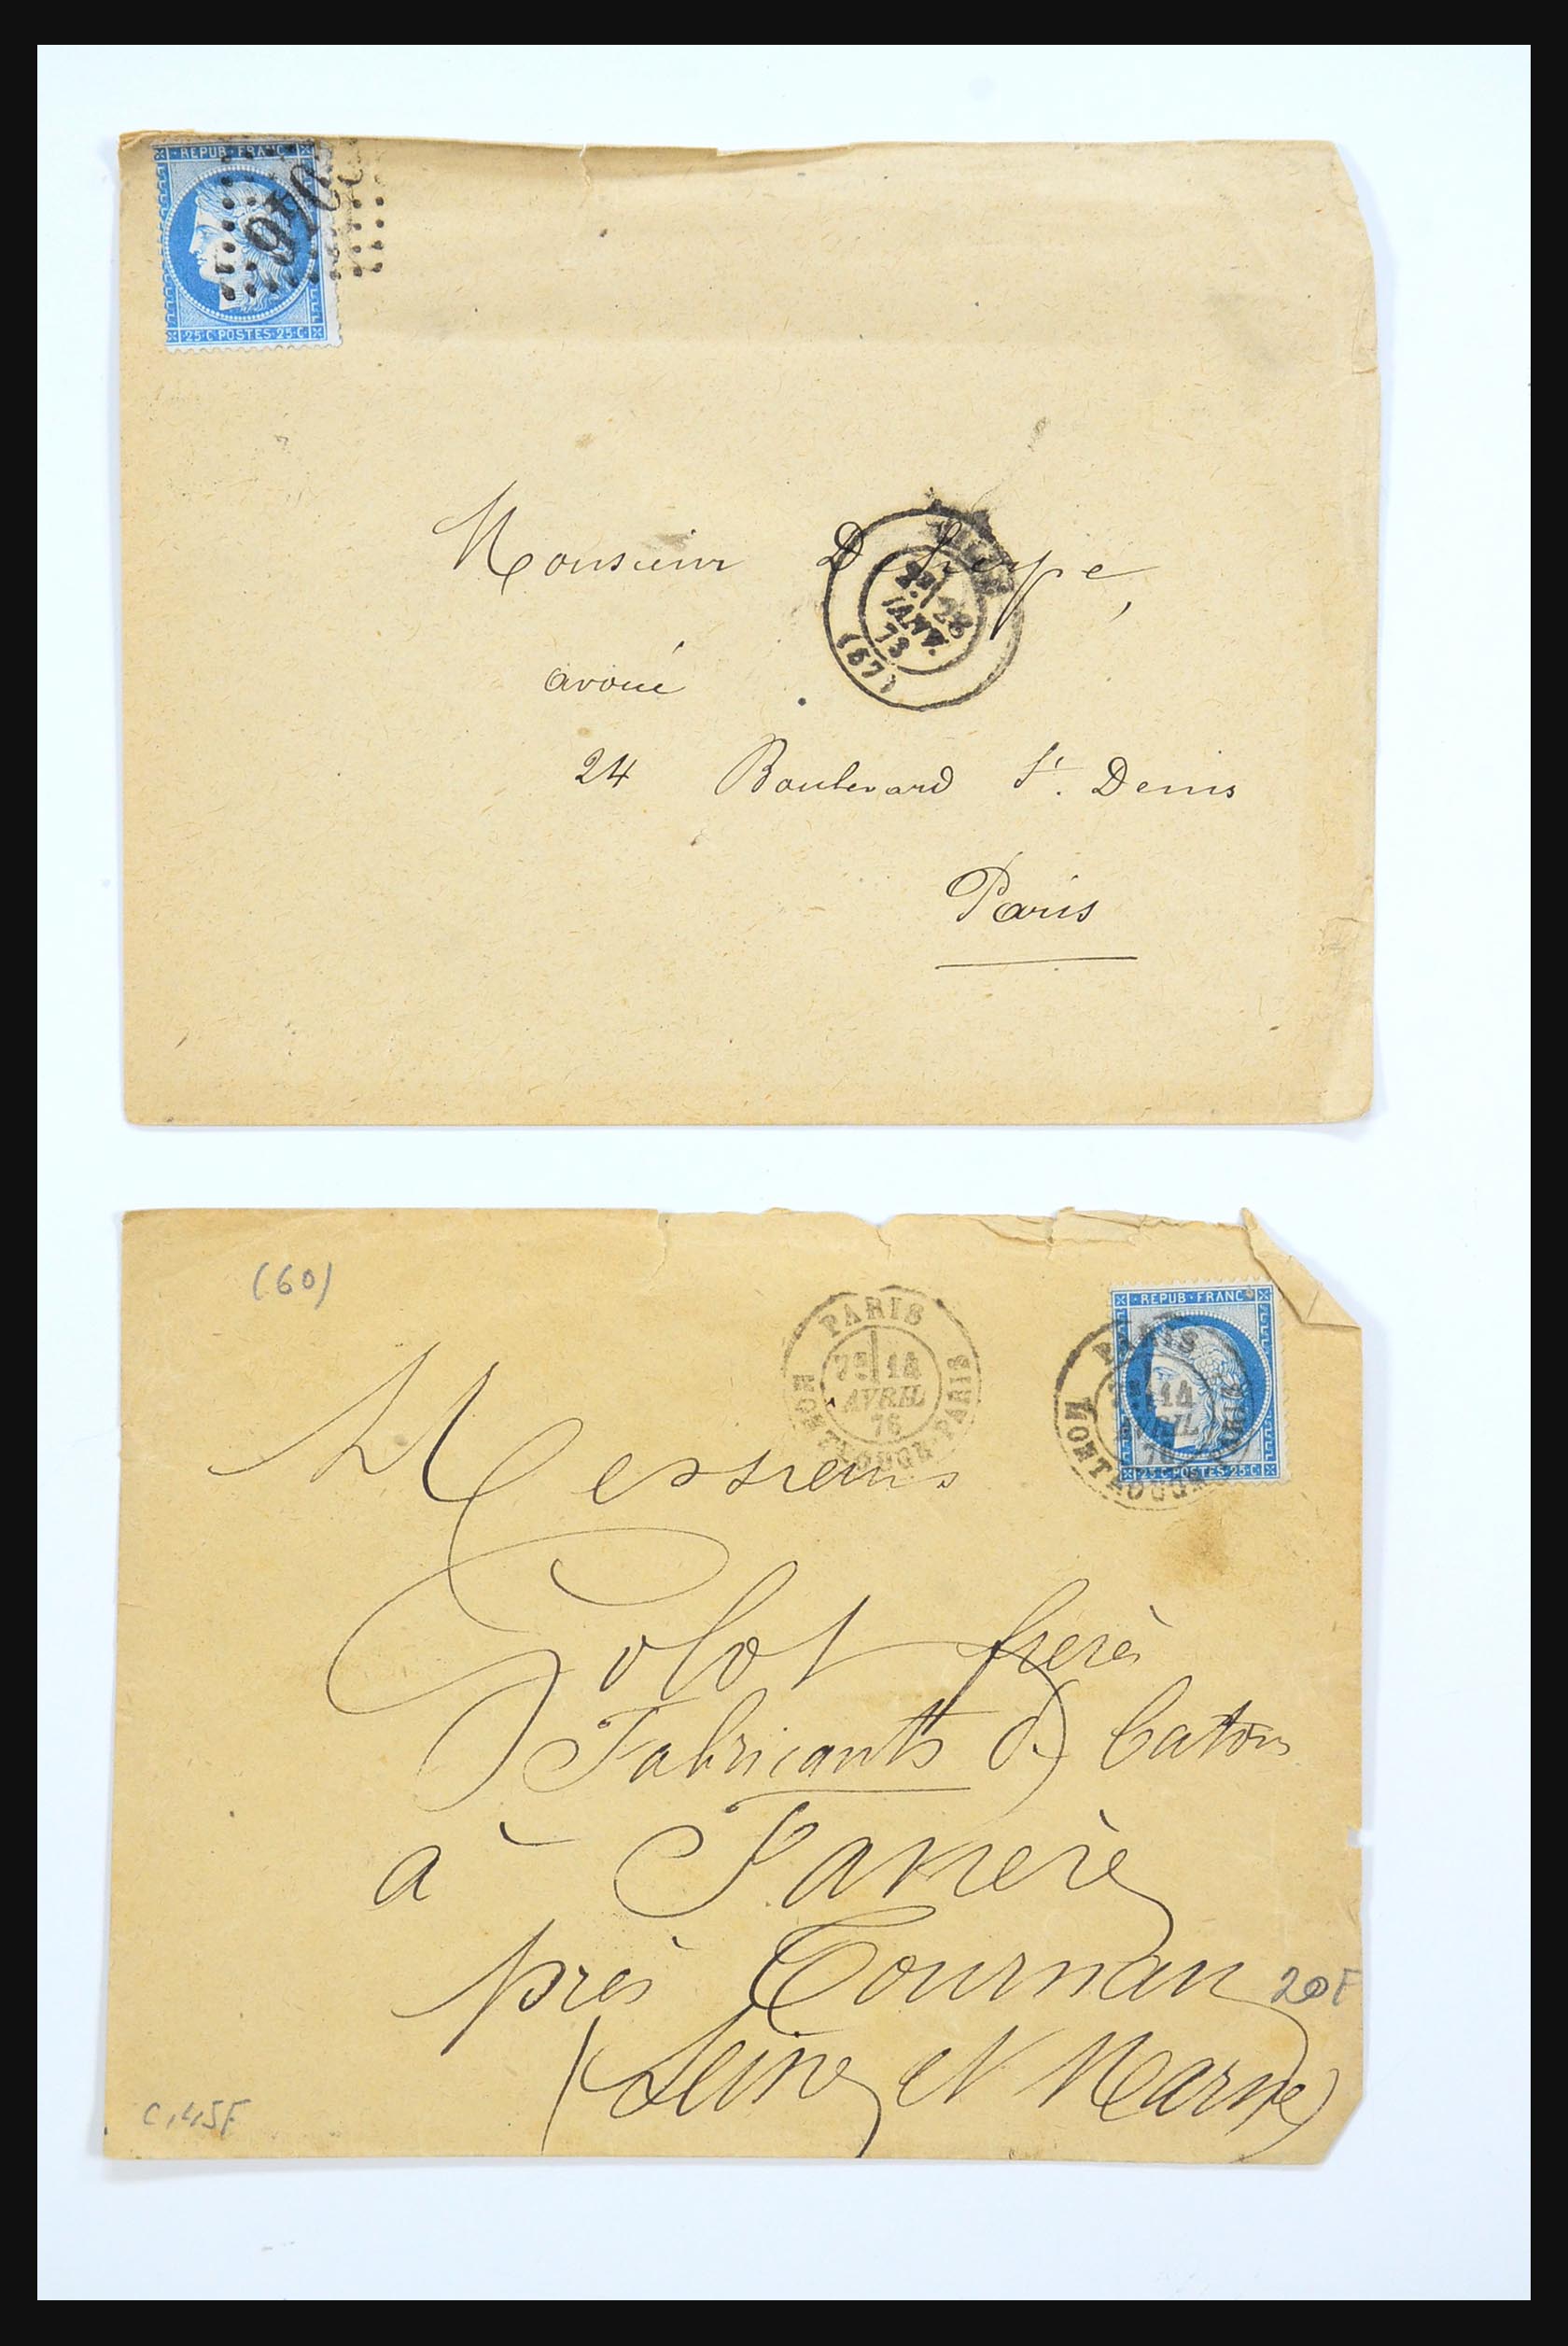 REPUB·FRANC
046
25·C·POSTES·25·C
Monsieur
2E 28
JANV.
73
(67)
avoué
24 Boulevard St. Denis
Paris
(60)
PARIS
7E 14
AVRIL
76
MONTROUGE-PARIS
REPUB·FRANC
PARIS
14
76
MONTROUGE
25·C·POSTES·25·C
Messieurs
frères
Fabricants de
à
près Tournan
20F
(Seine et Marne)
C.45F